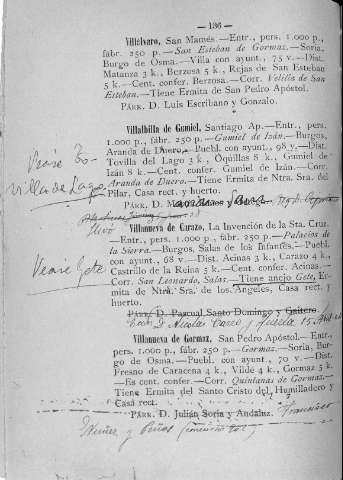 — 136 —
Villálvaro, San Mamés.—Entr., pers. 1.000 p.,
fábr. 250 p.—San Esteban de Gormaz.—Soria,
Burgo de Osma.—Villa con ayunt., 75 v.—Dist.
Matanza 3 k., Berzosa 5 k., Rejas de San Esteban
5 k. Cent. confer. Berzosa.—Corr. Velilla de San
Esteban.—Tiene Ermita de San Pedro Apóstol.
PÁRR. D. Luis Escribano y Gonzalo.
Villalbilla de Gumiel, Santiago Ap.—Entr., pers.
1.000 p., fábr. 250 p.—Gumiel de Izán.—Burgos,
Aranda de Duero.—Puebl. con ayunt., 98 v.—Dist.
Tovilla del Lago 3 k., Oquillas 8 k., Gumiel de
Izán 8 k.—Cent. confer. Gumiel de Izán.—Corr.
Aranda de Duero.—Tiene Ermita de Ntra. Sra. del
Pilar, Casa rect. y huerto.
Vease To-
villa de Lago
PÁRR. D.
Villanueva de Carazo, La Invención de la Sta. Cruz.
—Entr., pers. 1.000 p., fábr. 250 p.—Palacios de
la Sierra.—Burgos, Salas de los Infantes.—Puebl.
con ayunt., 68 v.—Dist. Acinas 3 k., Carazo 4 k.,
Castrillo de la Reina 5 k.—Cent. confer. Acinas.—
Corr. San Leonardo, Salas.—Tiene anejo Gete, Er-
mita de Ntra. Sra. de los Angeles, Casa rect. y
huerto.
Vease Gete
PÁRR. D. Pascual Santo Domingo y Gaitero.
D. Nicolas
Villanueva de Gormaz, San Pedro Apóstol.—Entr.,
pers. 1.000 p., fábr. 250 p.—Gormaz.—Soria, Bur-
go de Osma.—Puebl. con ayunt., 70 v.—Dist.
Fresno de Caracena 4 k., Vilde 4 k., Gormaz 5 k.
—Es cent. confer.—Corr. Quintanas de Gormaz.—
Tiene Ermita del Santo Cristo del Humilladero y
Casa rect.
PÁRR. D. Julián Soria y Andaluz. Francisco
Nuñez y Peñas